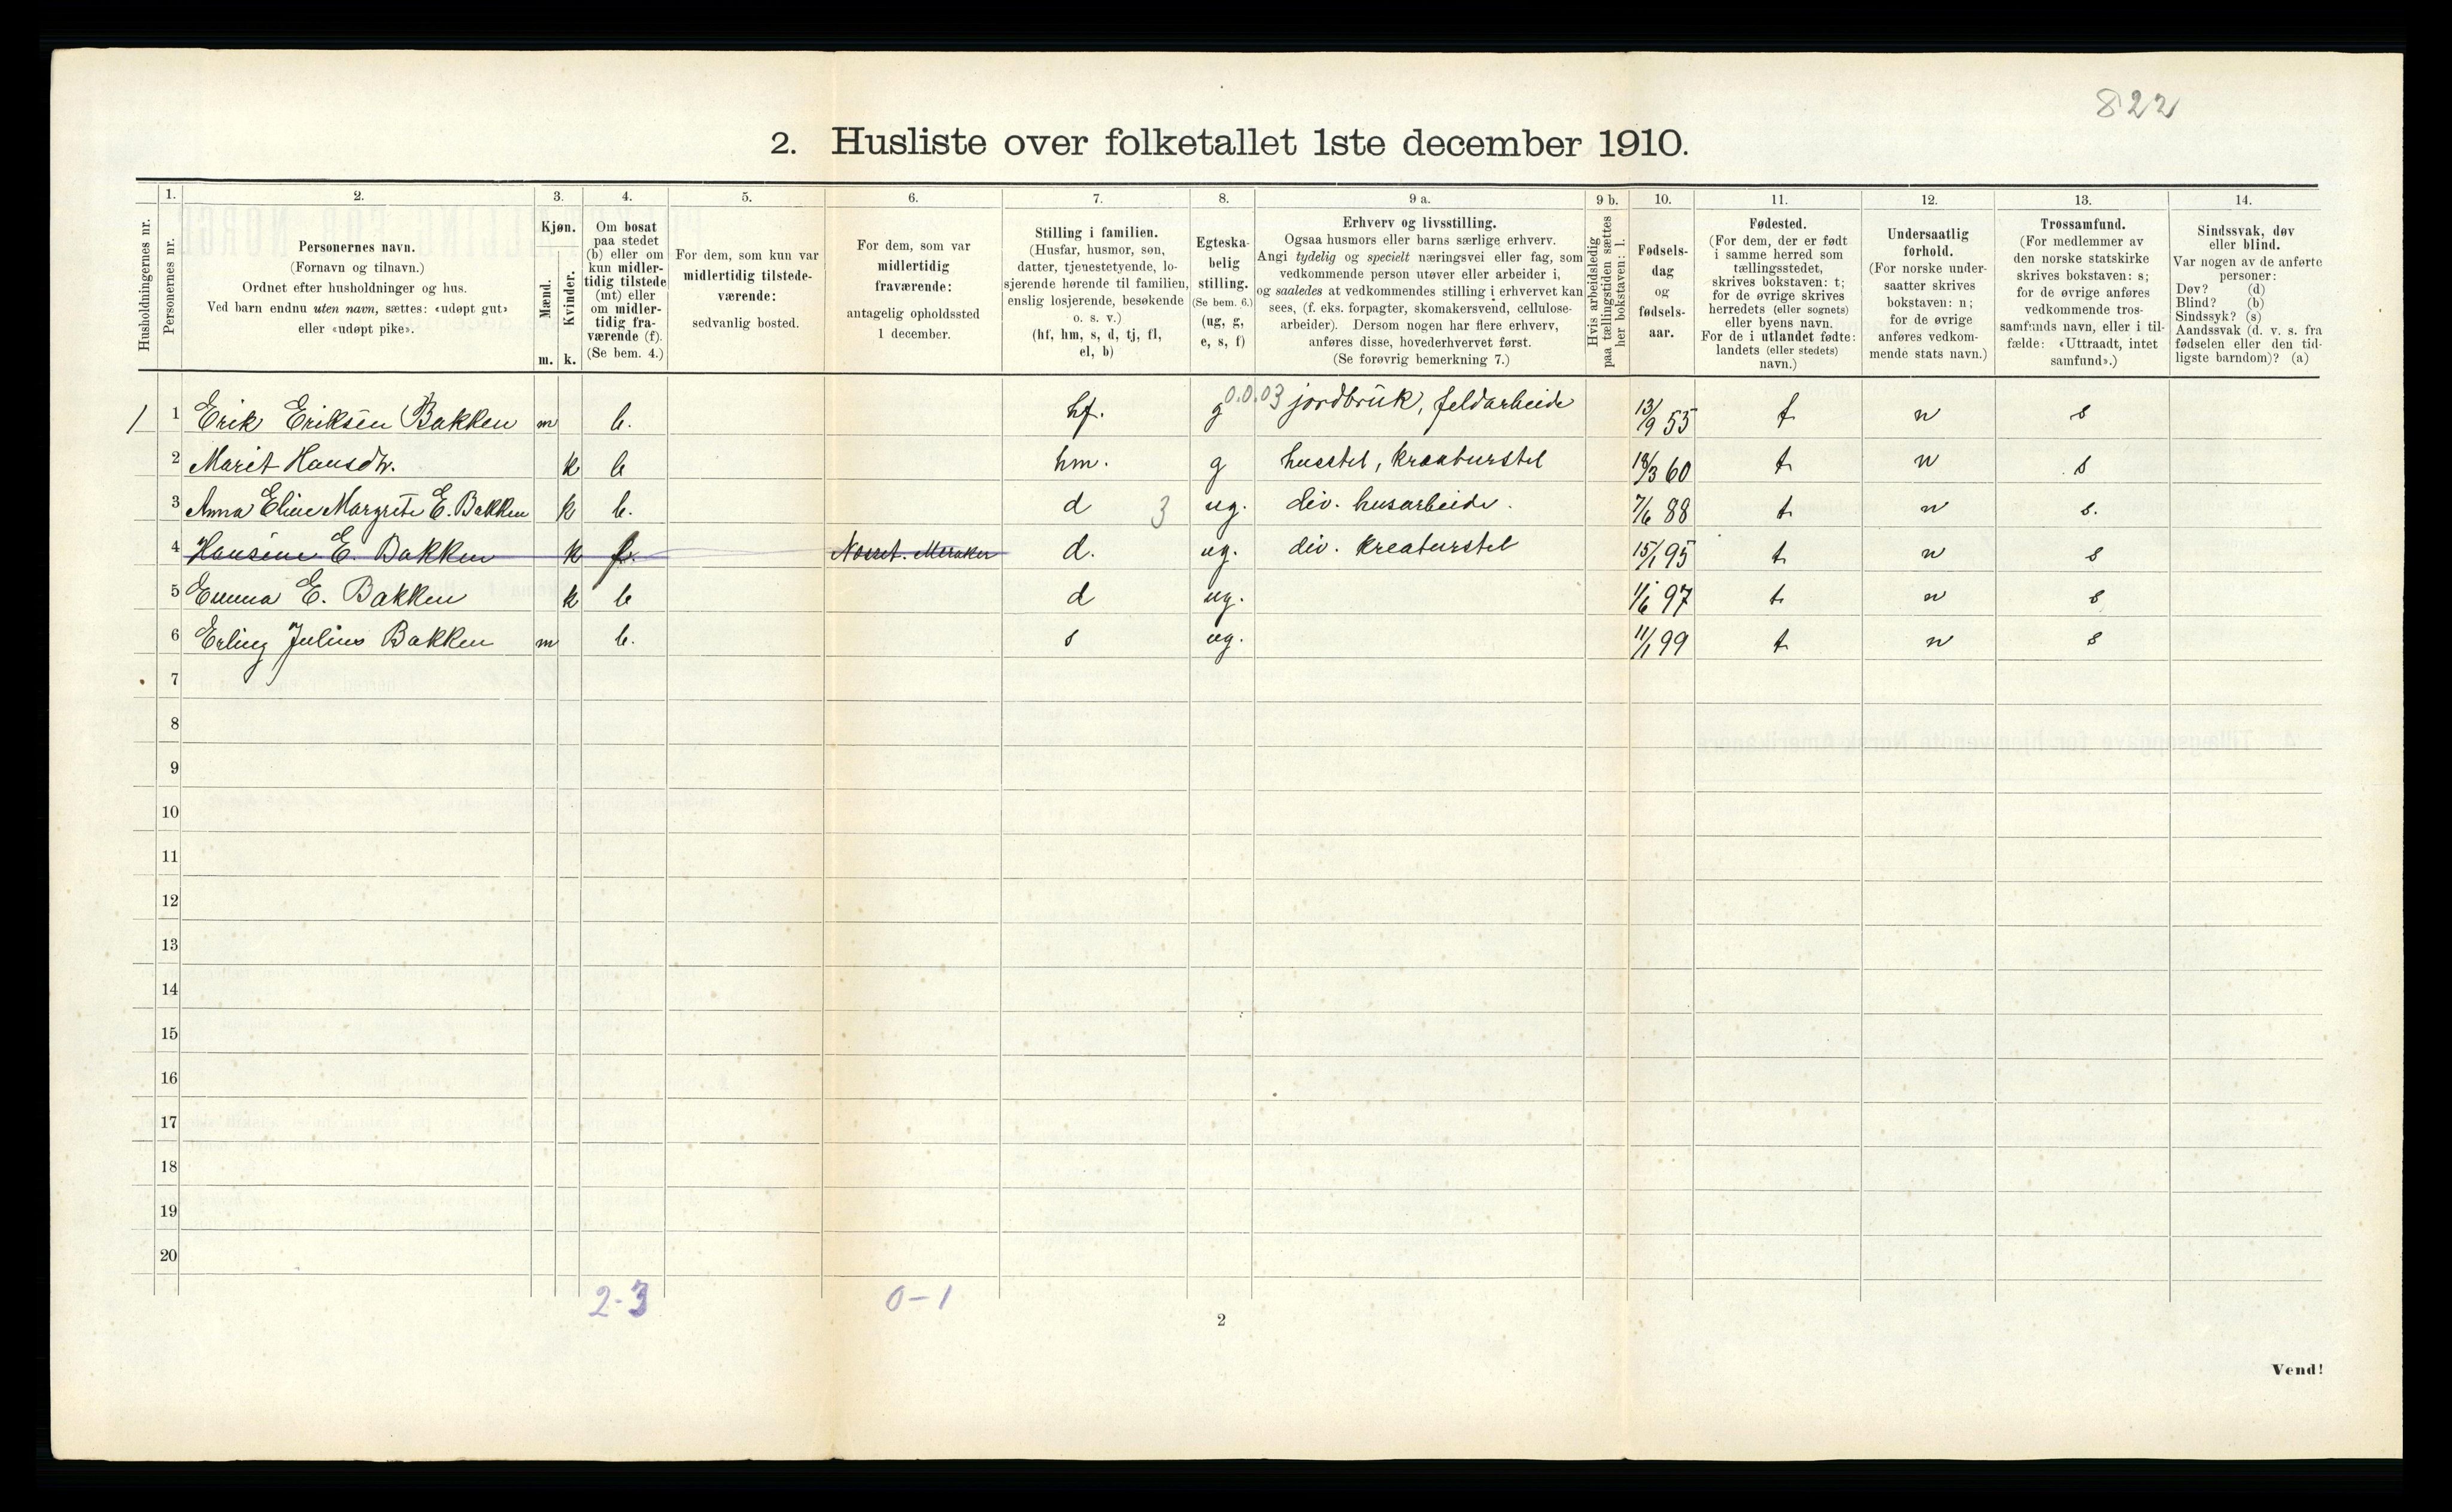 822
2. Husliste over folketallet 1ste december 1910.
Husholdningernes nr.
1.
Personernes nr.
2.
Personernes navn.
(Fornavn og tilnavn.)
Ordnet efter husholdninger og hus.
Ved barn endnu uten navn, sættes: «udøpt gut»
eller «udøpt pike».
3.
Kjøn.
Mænd.
Kvinder.
m. k.
4.
Om bosat
paa stedet
(b) eller om
kun midler-
tidig tilstede
(mt) eller
om midler-
tidig fra-
værende (f).
(Se bem. 4.)
5.
For dem, som kun var
midlertidig tilstede-
værende:
sedvanlig bosted.
6.
For dem, som var
midlertidig
fraværende:
antagelig opholdssted
1 december.
7.
Stilling i familien.
(Husfar, husmor, søn,
datter, tjenestetyende, lo-
sjerende hørende til familien,
enslig losjerende, besøkende
o. s. v.)
(hf, hm, s, d, tj, fl,
el, b)
8.
Egteska-
belig
stilling.
(Se bem. 6.)
(ug, g,
e, s, f)
9 a.
Erhverv og livsstilling.
Ogsaa husmors eller barns særlige erhverv.
Angi tydelig og specielt næringsvei eller fag, som
vedkommende person utøver eller arbeider i,
og saaledes at vedkommendes stilling i erhvervet kan
sees, (f. eks. forpagter, skomakersvend, cellulose-
arbeider). Dersom nogen har flere erhverv,
anføres disse, hovederhvervet først.
(Se forøvrig bemerkning 7.)
9 b.
Hvis arbeidsledig
paa tællingstiden sættes
her bokstaven: l.
10.
Fødsels-
dag
og
fødsels-
aar.
11.
Fødested.
(For dem, der er født
i samme herred som
tællingsstedet,
skrives bokstaven: t;
for de øvrige skrives
herredets (eller sognets)
eller byens navn.
For de i utlandet fødte:
landets (eller stedets)
navn.)
12.
Undersaatlig
forhold.
(For norske under-
saatter skrives
bokstaven: n;
for de øvrige
anføres vedkom-
mende stats navn.)
13.
Trossamfund.
(For medlemmer av
den norske statskirke
skrives bokstaven: s;
for de øvrige anføres
vedkommende tros-
samfunds navn, eller i til-
fælde: «Uttraadt, intet
samfund».)
14.
Sindssvak, døv
eller blind.
Var nogen av de anførte
personer:
Døv? (d)
Blind? (b)
Sindssyk? (s)
Aandssvak (d. v. s. fra
fødselen eller den tid-
ligste barndom)? (a)
1 1 Erik Eriksen Bakken m b. hf. g 0.0.03 jordbruk, feldarbeide 13/9 55 t n s
2 Marit Hansdtr. k b hm. g husstel, kreaturstel 18/3 60 t n s
3 Anna Eline Margrete E. Bakken k b. d 3 ug. div. husarbeide. 7/6 88 t n s.
4 Hansine E. Bakken k f. Meraker d. ug. div. kreaturstel 15/1 95 t n s
5 Emma E. Bakken k b d ug. 1/6 97 t n s
6 Erling Julius Bakken m b. s ug. 11/1 99 t n s
7
8
9
10
11
12
13
14
15
16
17
18
19
20
2-3 0-1
2
Vend!